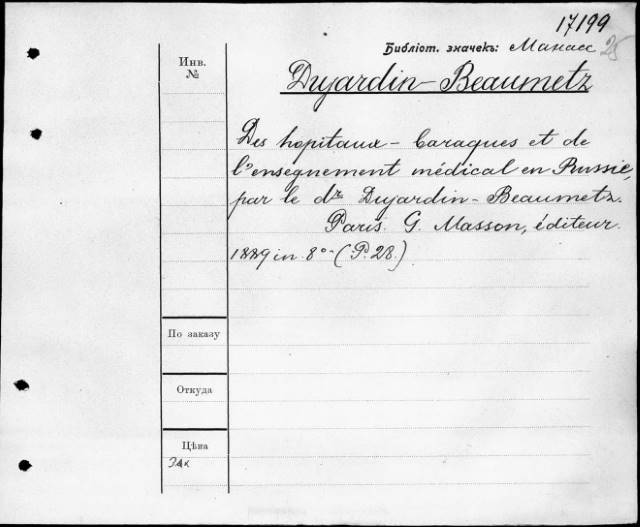 17199
Библіот. значекъ: Манасс 25
Инв.
№
Dujardin-Beaumetz
Des hopitaux-baraques et de
l'enseignement médical en Russie,
par le dr Dujardin-Beaumetz.
Paris. G. Masson, éditeur.
1889 in 8°-(P. 28.)
По заказу
Откуда
Цѣна